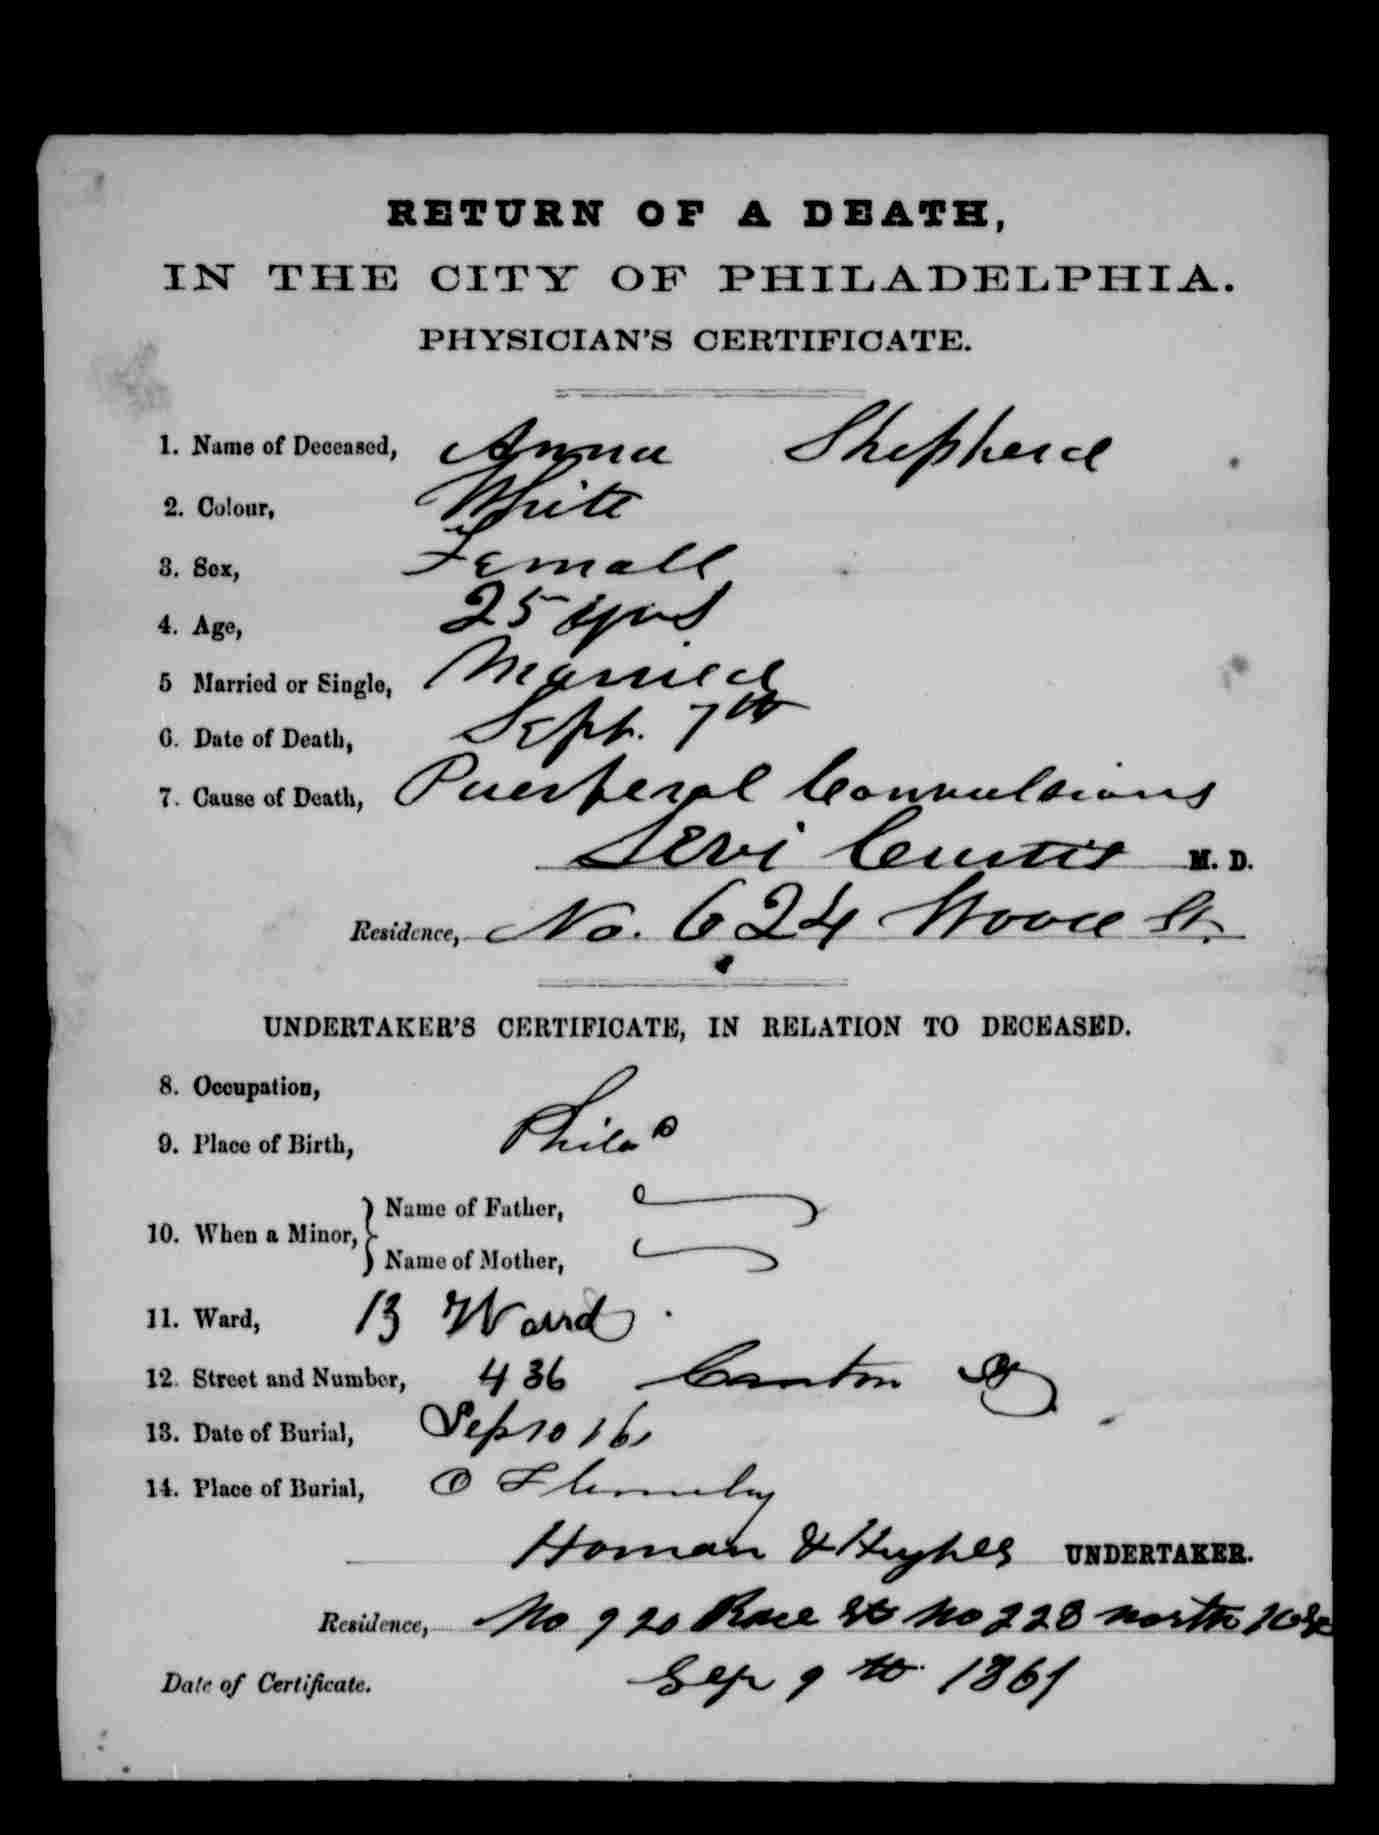 RETURN OF A DEATH,
IN THE CITY OF PHILADELPHIA.
PHYSICIAN'S CERTIFICATE.
1. Name of Deceased, Anna Shepherd
2. Colour, White
3. Sex, Female
4. Age, 25 yrs
5 Married or Single, Married
6. Date of Death, Sept. 7th
7. Cause of Death, Puerperal Convulsions
Levi Curtis M. D.
Residence, No. 624 Wood St.
UNDERTAKER'S CERTIFICATE, IN RELATION TO DECEASED.
8. Occupation,
9. Place of Birth, Phila
10. When a Minor, Name of Father,
Name of Mother,
11. Ward, 13 Ward
12. Street and Number, 436 St
13. Date of Burial, Sep 10
14. Place of Burial,
Homan & Hughes UNDERTAKER.
Residence, No 920 Race St No 228 north 10
Date of Certificate. Sep 9 th 1861